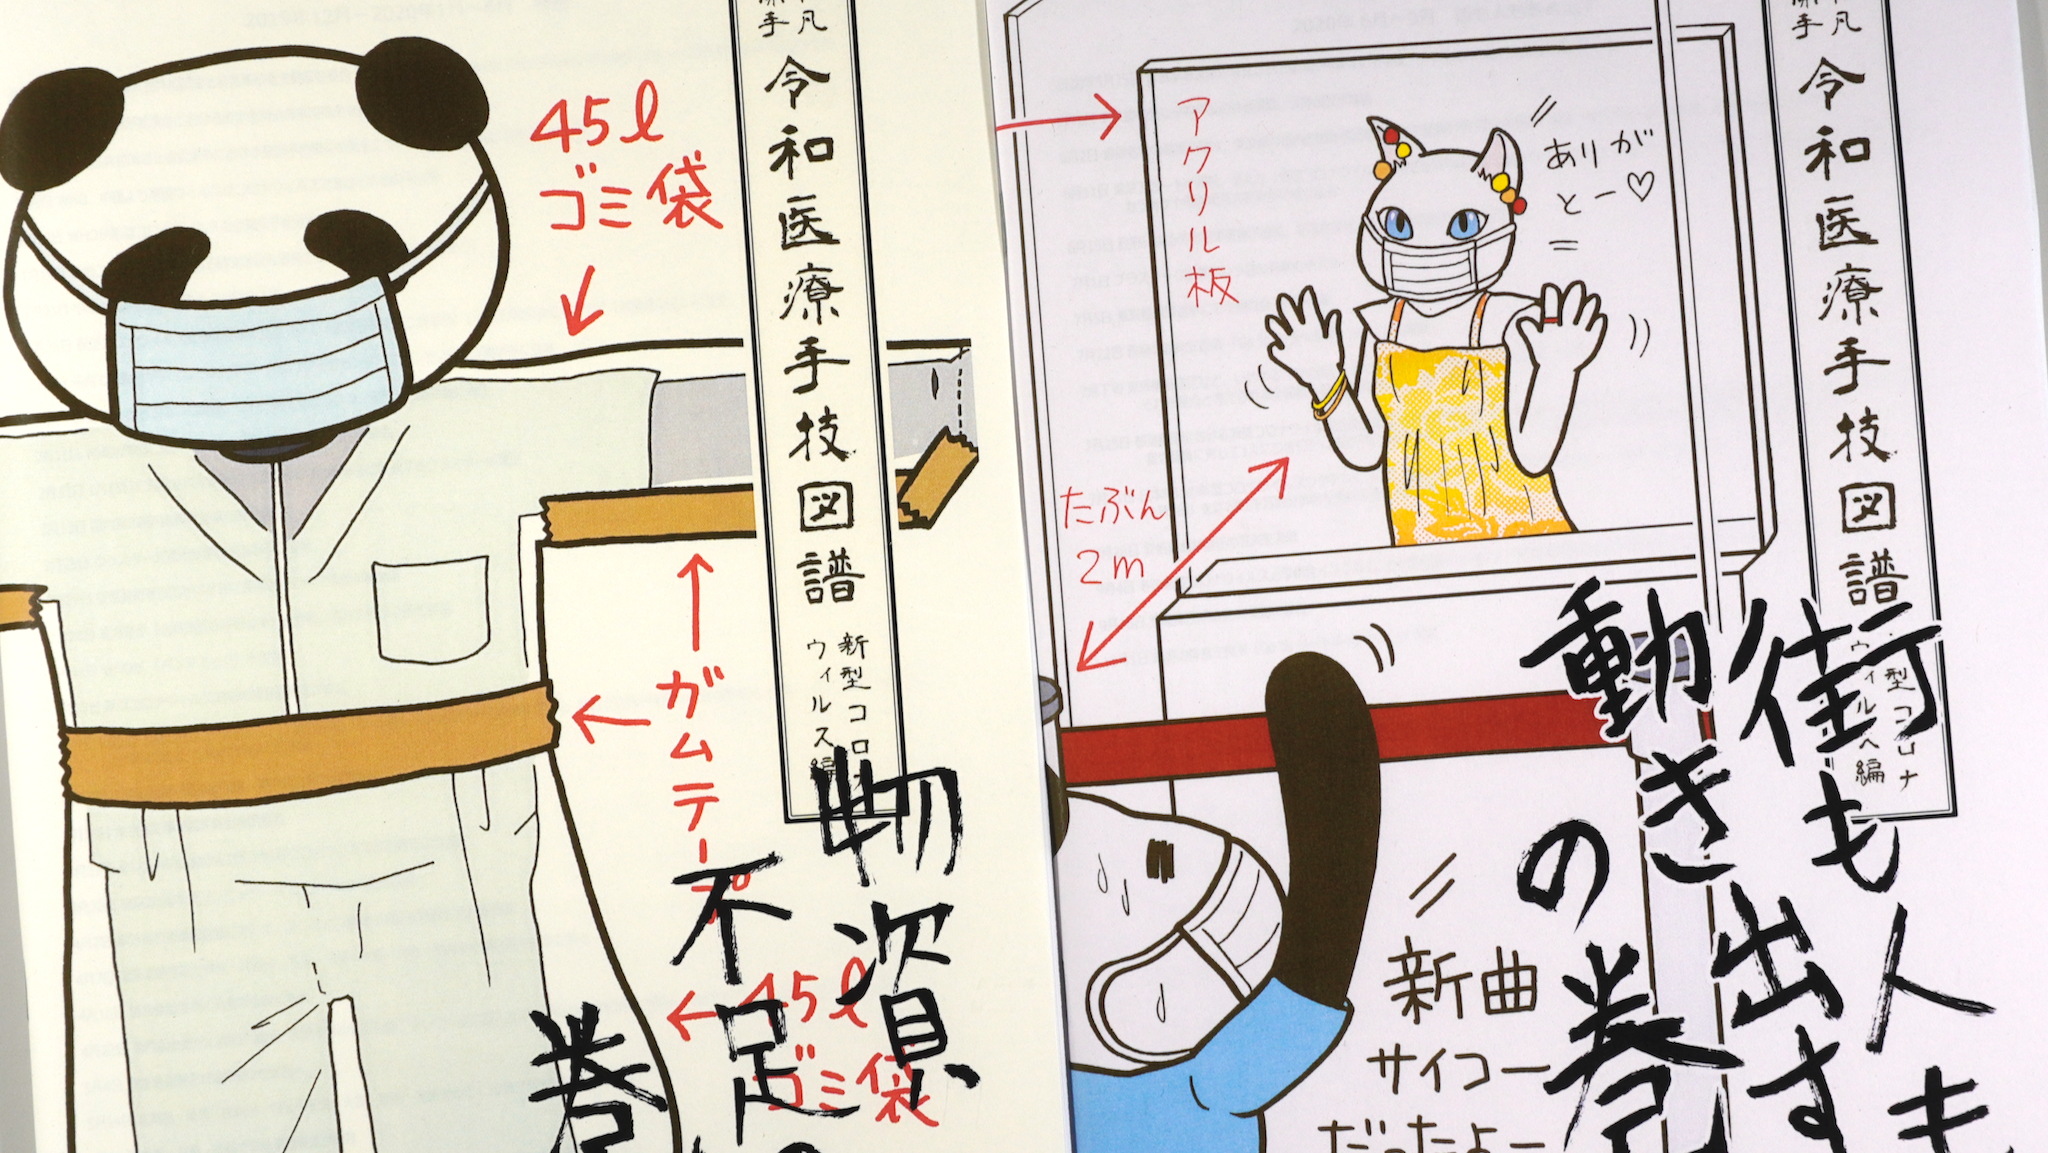 令和医療手技図譜
新型コロ
ウィルス編
45ℓ
ゴミ袋
ガムテープ
45ℓ
ゴミ袋
物資
不足の
巻
令和医療手技図譜
型コロナ
編
アクリル板
ありが
とー♡
たぶん
2m
新曲
サイコー
だったよー
街も人も
動き出す
の巻